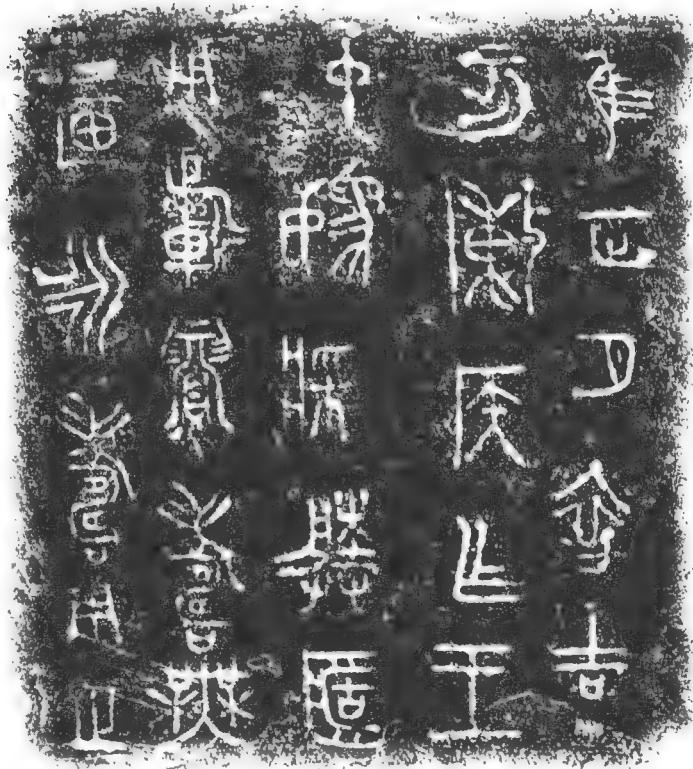 隹正月初吉
丁亥敶侯乍王
中媯媵
用眉壽無
永壽用之